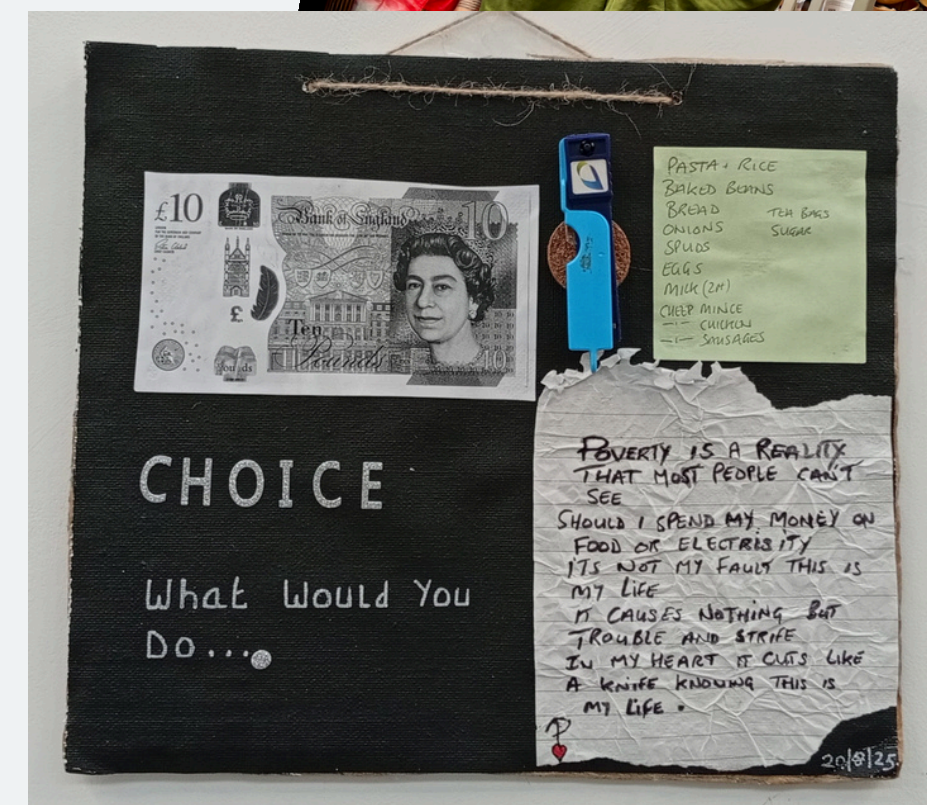 £10
Bank of England
10
£
Ten
Pounds
10
PASTA + RICE
BAKED BEANS
BREAD
ONIONS
SPUDS
EGGS
MILK (2PT)
CHEEP MINCE
—〃— CHICKEN
—〃— SAUSAGES
TEA BAGS
SUGAR
CHOICE
What Would You
Do....
POVERTY IS A REALITY
THAT MOST PEOPLE CAN'T
SEE
SHOULD I SPEND MY MONEY ON
FOOD OR ELECTRISITY
ITS NOT MY FAULT THIS IS
MY LIFE
IT CAUSES NOTHING BUT
TROUBLE AND STRIFE
IN MY HEART IT CUTS LIKE
A KNIFE KNOWING THIS IS
MY LIFE .
20/8/25